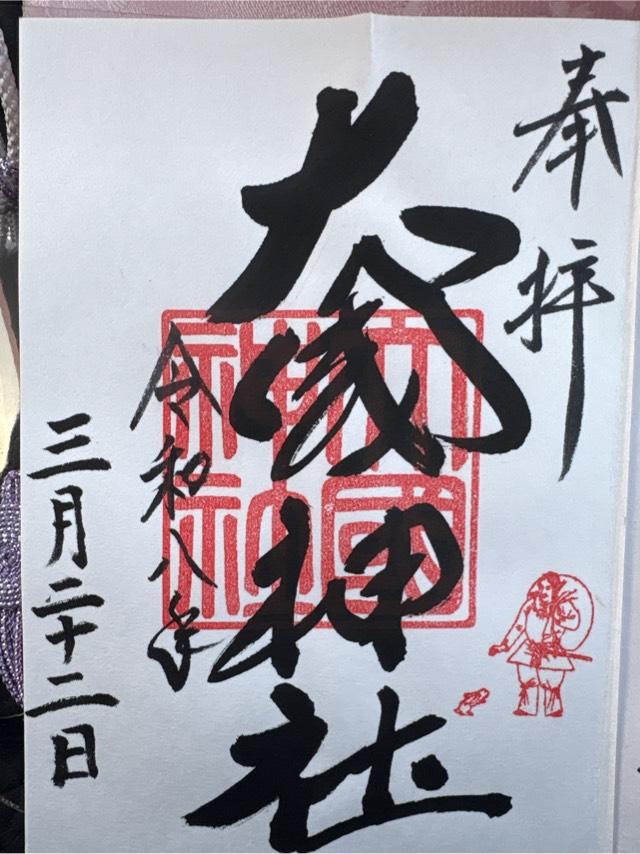 奉拝
大國神社
大國神社
令和八年
三月二十二日